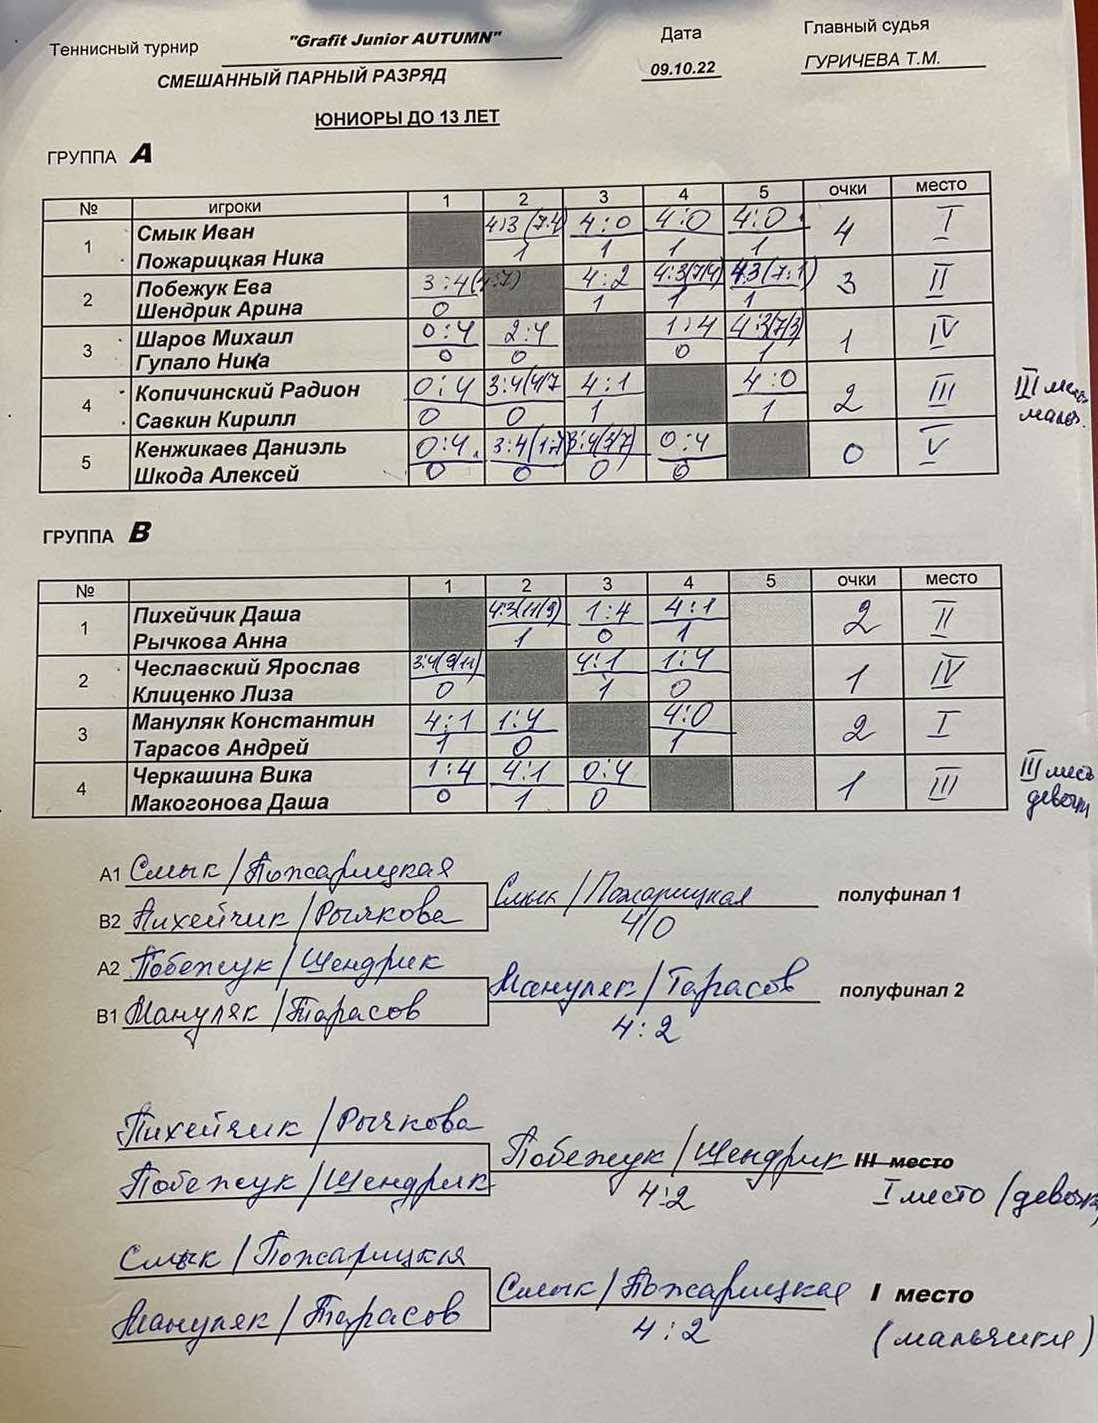 Теннисный турнир "Grafit Junior AUTUMN" Дата Главный судья
СМЕШАННЫЙ ПАРНЫЙ РАЗРЯД 09.10.22 ГУРИЧЕВА Т.М.
ЮНИОРЫ ДО 13 ЛЕТ
ГРУППА А
№ игроки 1 2 3 4 5 очки место
1 Смык Иван 4:3 (7:4) 4:0 4:0 4:0 4 I
Пожарицкая Ника 1 1 1 1
2 Побежук Ева 3:4(4:7) 4:2 4:3(7/4) 4:3(7:1) 3 II
Шендрик Арина 0 1 1 1
3 Шаров Михаил 0:4 2:4 1:4 4:3(7/3) 1 IV
Гупало Ника 0 0 0 1
4 Копичинский Радион 0:4 3:4(4/7 4:1 4:0 2 III III место
Савкин Кирилл 0 0 1 1 мальч.
5 Кенжикаев Даниэль 0:4 3:4(1:7) 3:4(3/7) 0:4 0 V
Шкода Алексей 0 0 0 0
ГРУППА В
№ 1 2 3 4 5 очки место
1 Пихейчик Даша 4:3(11/9) 1:4 4:1 2 II
Рычкова Анна 1 0 1
2 Чеславский Ярослав 3:4(9/11) 4:1 1:4 1 IV
Клиценко Лиза 0 1 0
3 Мануляк Константин 4:1 1:4 4:0 2 I
Тарасов Андрей 1 0 1
4 Черкашина Вика 1:4 4:1 0:4 1 III III место
Макогонова Даша 0 1 0 девочки
А1 Смык/Пожарицкая
Смык/Пожарицкая полуфинал 1
В2 Пихейчик/Рычкова 4/0
А2 Побежук/Шендрик
Мануляк/Тарасов полуфинал 2
В1 Мануляк/Тарасов 4:2
Пихейчик/Рычкова
Побежук/Шендрик III место
Побежук/Шендрик 4:2 I место (девочки
Смык/Пожарицкая
Смык/Пожарицкая I место
Мануляк/Тарасов 4:2 (мальчики)